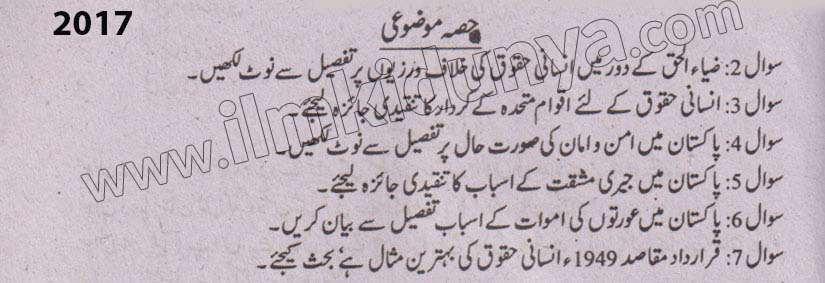 2017
حصہ موضوعی
سوال 2: ضیاء الحق کے دور میں انسانی حقوق کی خلاف ورزیوں پر تفصیل سے نوٹ لکھیں۔
سوال 3: انسانی حقوق کے لئے اقوام متحدہ کے کردار کا تنقیدی جائزہ لیجئے۔
سوال 4: پاکستان میں امن و امان کی صورت حال پر تفصیل سے نوٹ لکھیں۔
سوال 5: پاکستان میں جبری مشقت کے اسباب کا تنقیدی جائزہ لیجئے۔
سوال 6: پاکستان میں عورتوں کی اموات کے اسباب تفصیل سے بیان کریں۔
سوال 7: قرارداد مقاصد 1949ء انسانی حقوق کی بہترین مثال ہے، بحث کیجئے۔
www.ilmkidunya.com